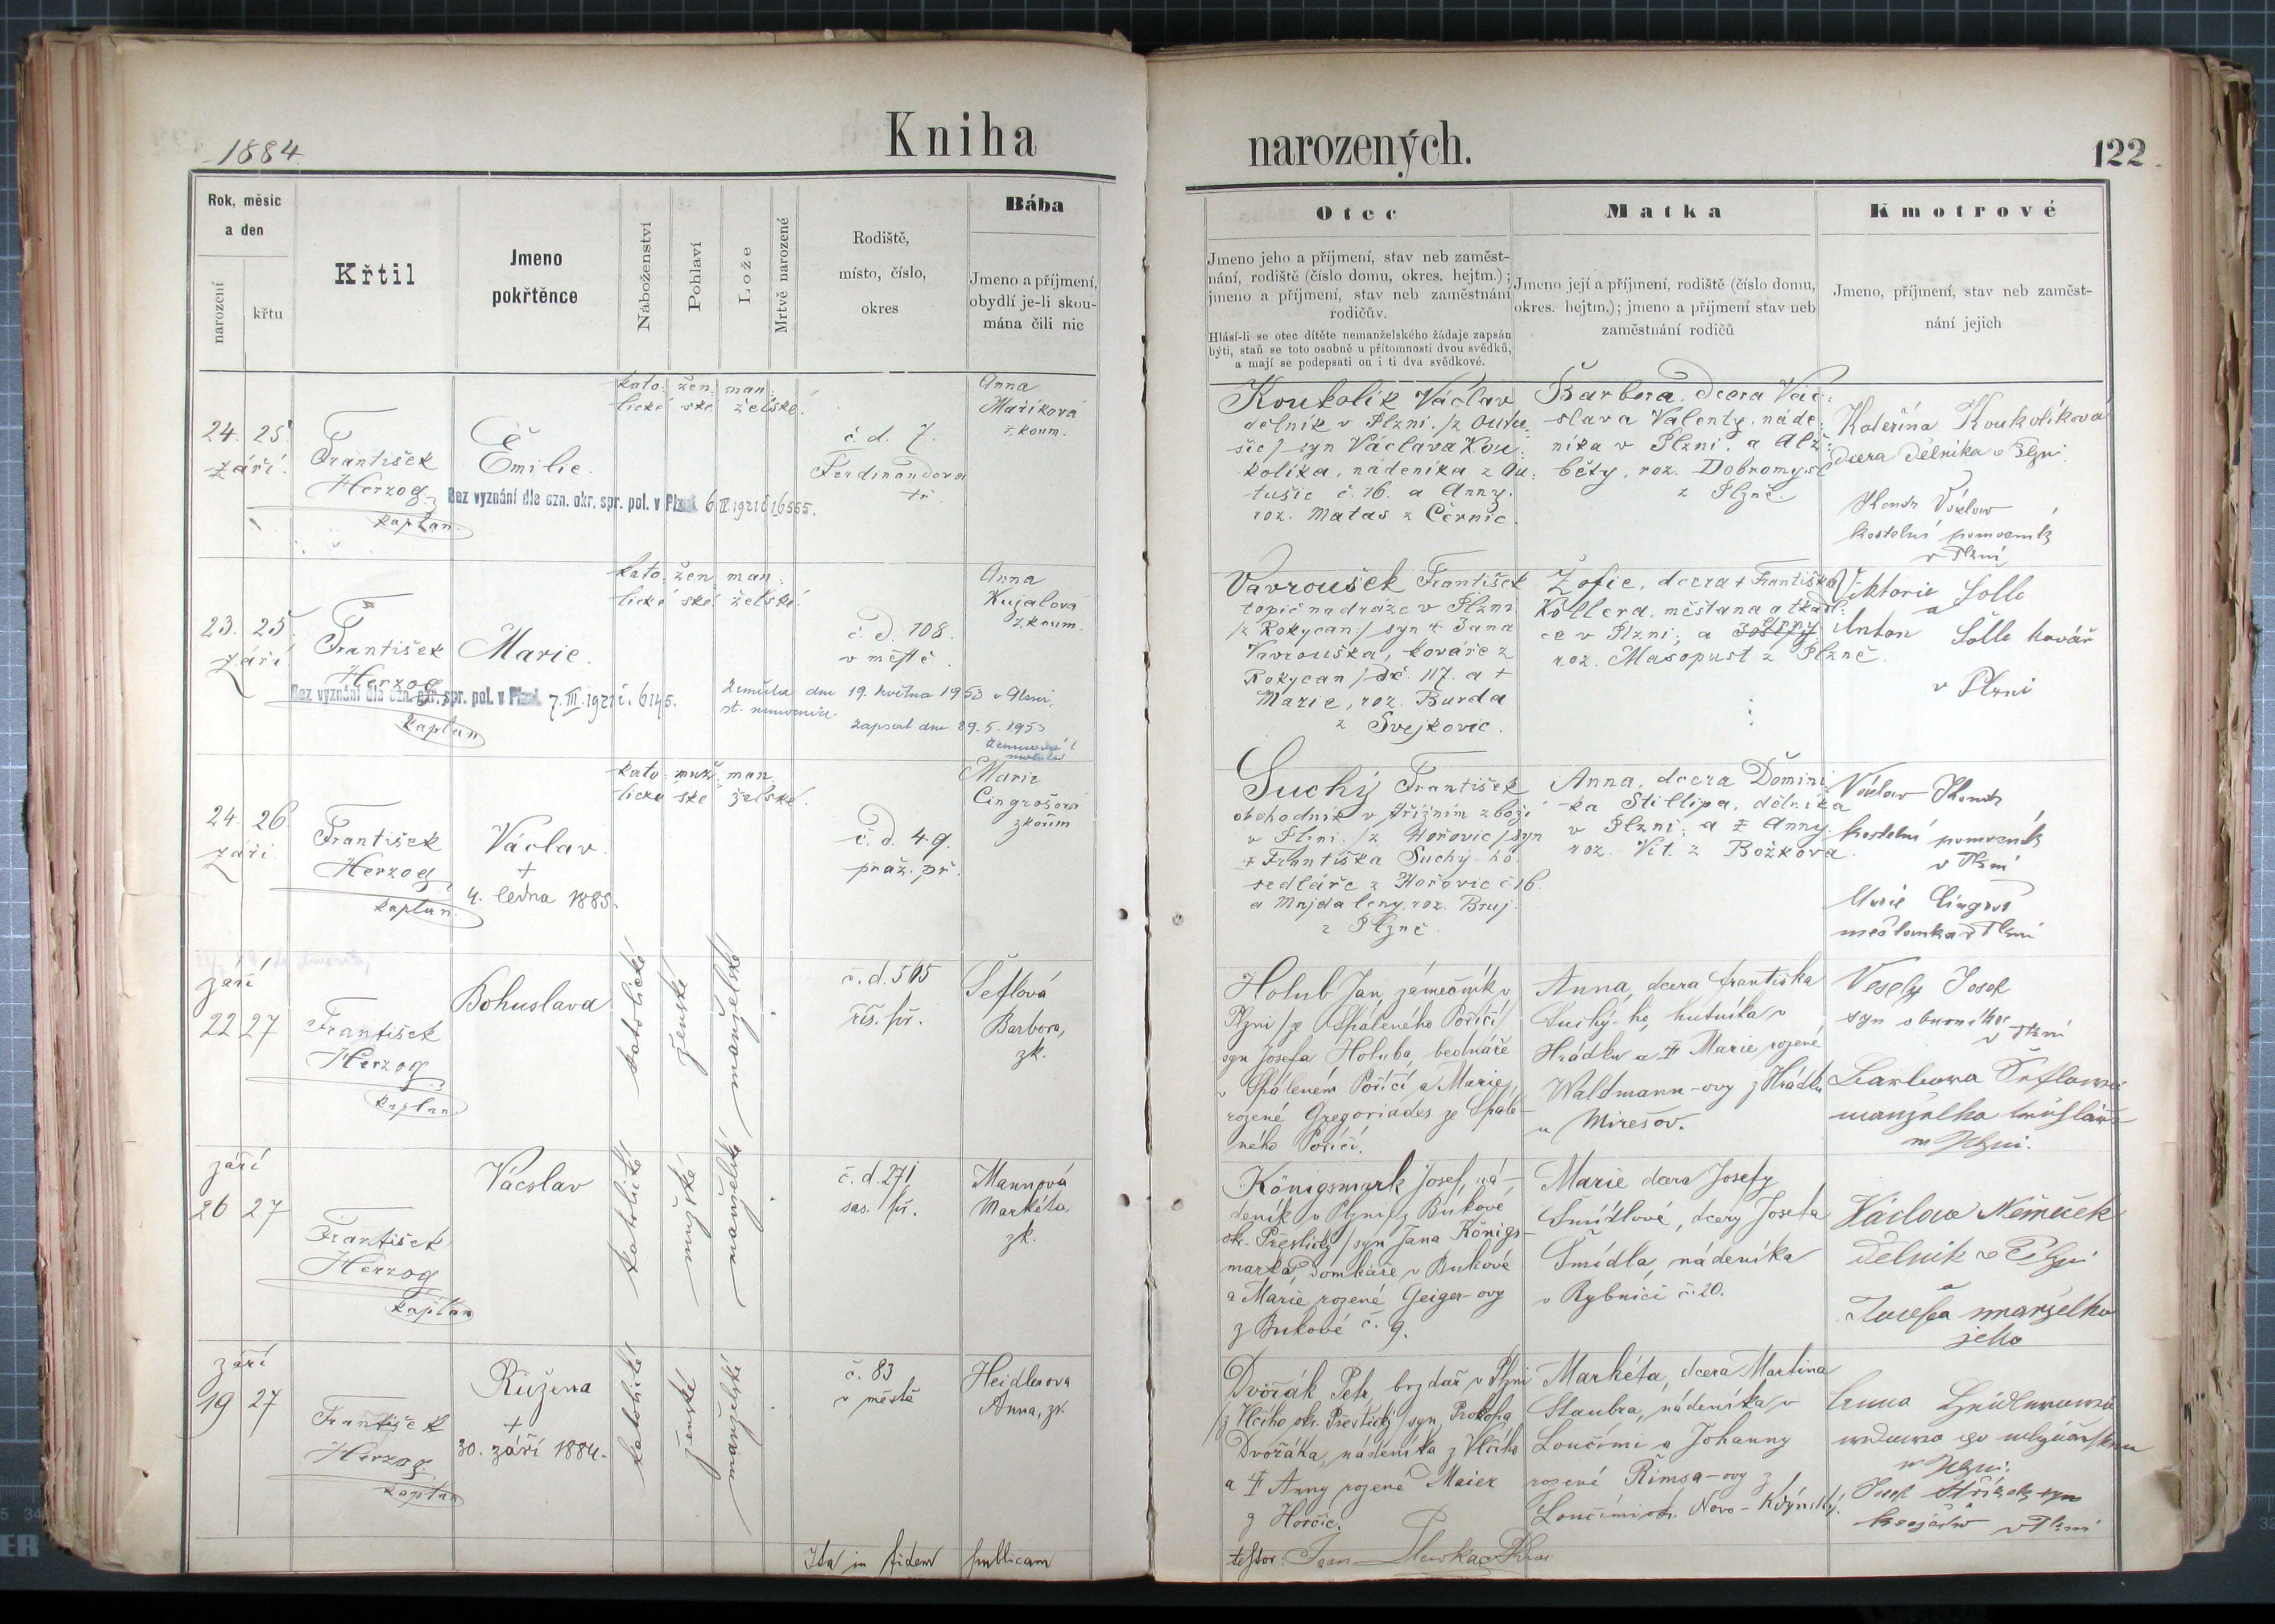 1884
Kniha
narozených.
122
Rok, měsíc
a den
narození
křtu
Křtil
Jmeno
pokřtěnce
Náboženství
Pohlaví
Lože
Mrtvě narozené
Rodiště,
místo, číslo,
okres
Bába
Jmeno a příjmení,
obydlí je-li skou-
mána čili nic
Otec
Jmeno jeho a příjmení, stav neb zaměst-
nání, rodiště (číslo domu, okres. hejtm.);
jmeno a příjmení, stav neb zaměstnání
rodičův.
Hlásí-li se otec dítěte nemanželského žádaje zapsán
býti, staň se toto osobně u přítomnosti dvou svědků,
a mají se podepsati on i ti dva svědkové.
Matka
Jmeno její a příjmení, rodiště (číslo domu,
okres. hejtm.); jmeno a příjmení stav neb
zaměstnání rodičů
Kmotrové
Jmeno, příjmení, stav neb zaměst-
nání jejich
24. 25.
září.
František
Herzog
kaplan.
Emilie.
kato: žen: man:
lické ské želské.
č. d. 7.
Ferdinandova
tř.
Anna
Maříková
zkoum.
Bez vyznání dle ozn. okr. spr. pol. v Plzni 6 II 1921 č 16555.
Koukolík Václav
dělník v Plzni. /z Outu:
šic/ syn Václava Kou:
kolíka, nádeníka z Ou:
tušic č. 16. a Anny.
roz. Matas z Černic.
Barbora, dcera Vác:
slava Valenty, náde:
níka v Plzni, a Alž:
běty, roz. Dobromysl
z Plzně.
Kateřina Koukolíková
dcera dělníka v Plzni.
Václav
kostelní pomocník
v Plzni
23. 25.
září
František
Herzog
kaplan
Marie.
kato: žen: man:
lické ské želské.
č. d. 108.
v městě.
Anna
Kujalová
zkoum.
Bez vyznání dle ozn. okr. spr. pol. v Plzni 7. III. 1921 č. 6145.
Zemřela dne 19. května 1953 v Plzni,
st. nemocnice.
Zapsal dne 29. 5. 1953
Vavroušek František
topič na dráze v Plzni
/z Rokycan/ syn + Jana
Vavrouška, kováře z
Rokycan / Dč. 117. a +
Marie, roz. Burda
z Svejkovic.
Žofie, dcera + Františka
Kollera, měšťana a tkadl:
ce v Plzni; a Josefy Anny
roz. Masopust z Plzně.
Viktorie Solle
a
Anton Solle kovář
v Plzni
24. 26.
září
František
Herzog
kaplan.
Václav.
+
4. ledna 1885.
kato: muž: man:
lické ské želské.
č. d. 49.
praž. př.
Marie
Cingrošová
zkoum
Suchý František
obchodník v střižním zboží
v Plzni. /z Hořovic/ syn
+ Františka Suchý-ho.
sedláře z Hořovic č 16.
a Majdaleny, roz. Bruj.
z Plzně.
Anna, dcera Domini:
ka Stillipa, dělníka
v Plzni; a + Anny.
roz. Vít. z Božkova.
Václav
kostelní pomocník
v Plzni
Marie Cingroš
měšťanka v Plzni
září
22 27
František
Herzog
kaplan
Bohuslava
katolické
ženské
manželské
č. d. 505
říš. př.
Šeflová
Barbora,
zk.
Holub Jan, zámečník v
Plzni /ze Spáleného Poříčí/
syn Josefa Holuba, bednáře
v Spáleném Poříčí a Marie,
rozené Gregoriades ze Spále-
ného Poříčí.
Anna, dcera Františka
Suchý-ho, hutníka v
Hrádku a + Marie rozené
Waldmann-ovy z Hrádku
u Mirešov.
Veselý Josef
syn
v Plzni
Barbora Šeflowa
manželka truhláře
w Plzni.
září
26 27
František
Herzog
kaplan
Vácslav
katolické
mužské
manželské
č. d. 271
sas. př.
Mannová
Markéta,
zk.
Königsmark Josef, ná-
deník v Plzni /z Bukové
okr. Přeštický/ syn Jana Königs-
marka, domkáře v Bukové
a Marie rozené Geiger-ovy
z Bukové č. 9.
Marie dcera Josefy
Šmídlové, dcery Josefa
Šmídla, nádeníka
v Rybnici č. 20.
Václav Němeček
dělník v Plzni
Josefa manželka
jeho
září
19 27
František
Herzog
kaplan
Růžena
+
30. září 1884.
katolické
ženské
manželské
č. 83
v městě
Heidlerova
Anna, zk
Dvořák Petr, brzdař v Plzni
/z Vlčího okr. Přeštický/ syn Prokopa
Dvořáka, nádeníka z Vlčího
a + Anny rozené Maier
z Horčic.
Markéta, dcera Martina
Staubra, nádeníka v
Loučími a Johanny
rozené Řimsa-ovy z
Loučími okr. Novo-Kdýnský.
Anna
wdowa po
w Plzni.
Josef
v Plzni
Ita in fidem publicam
testor: Joan